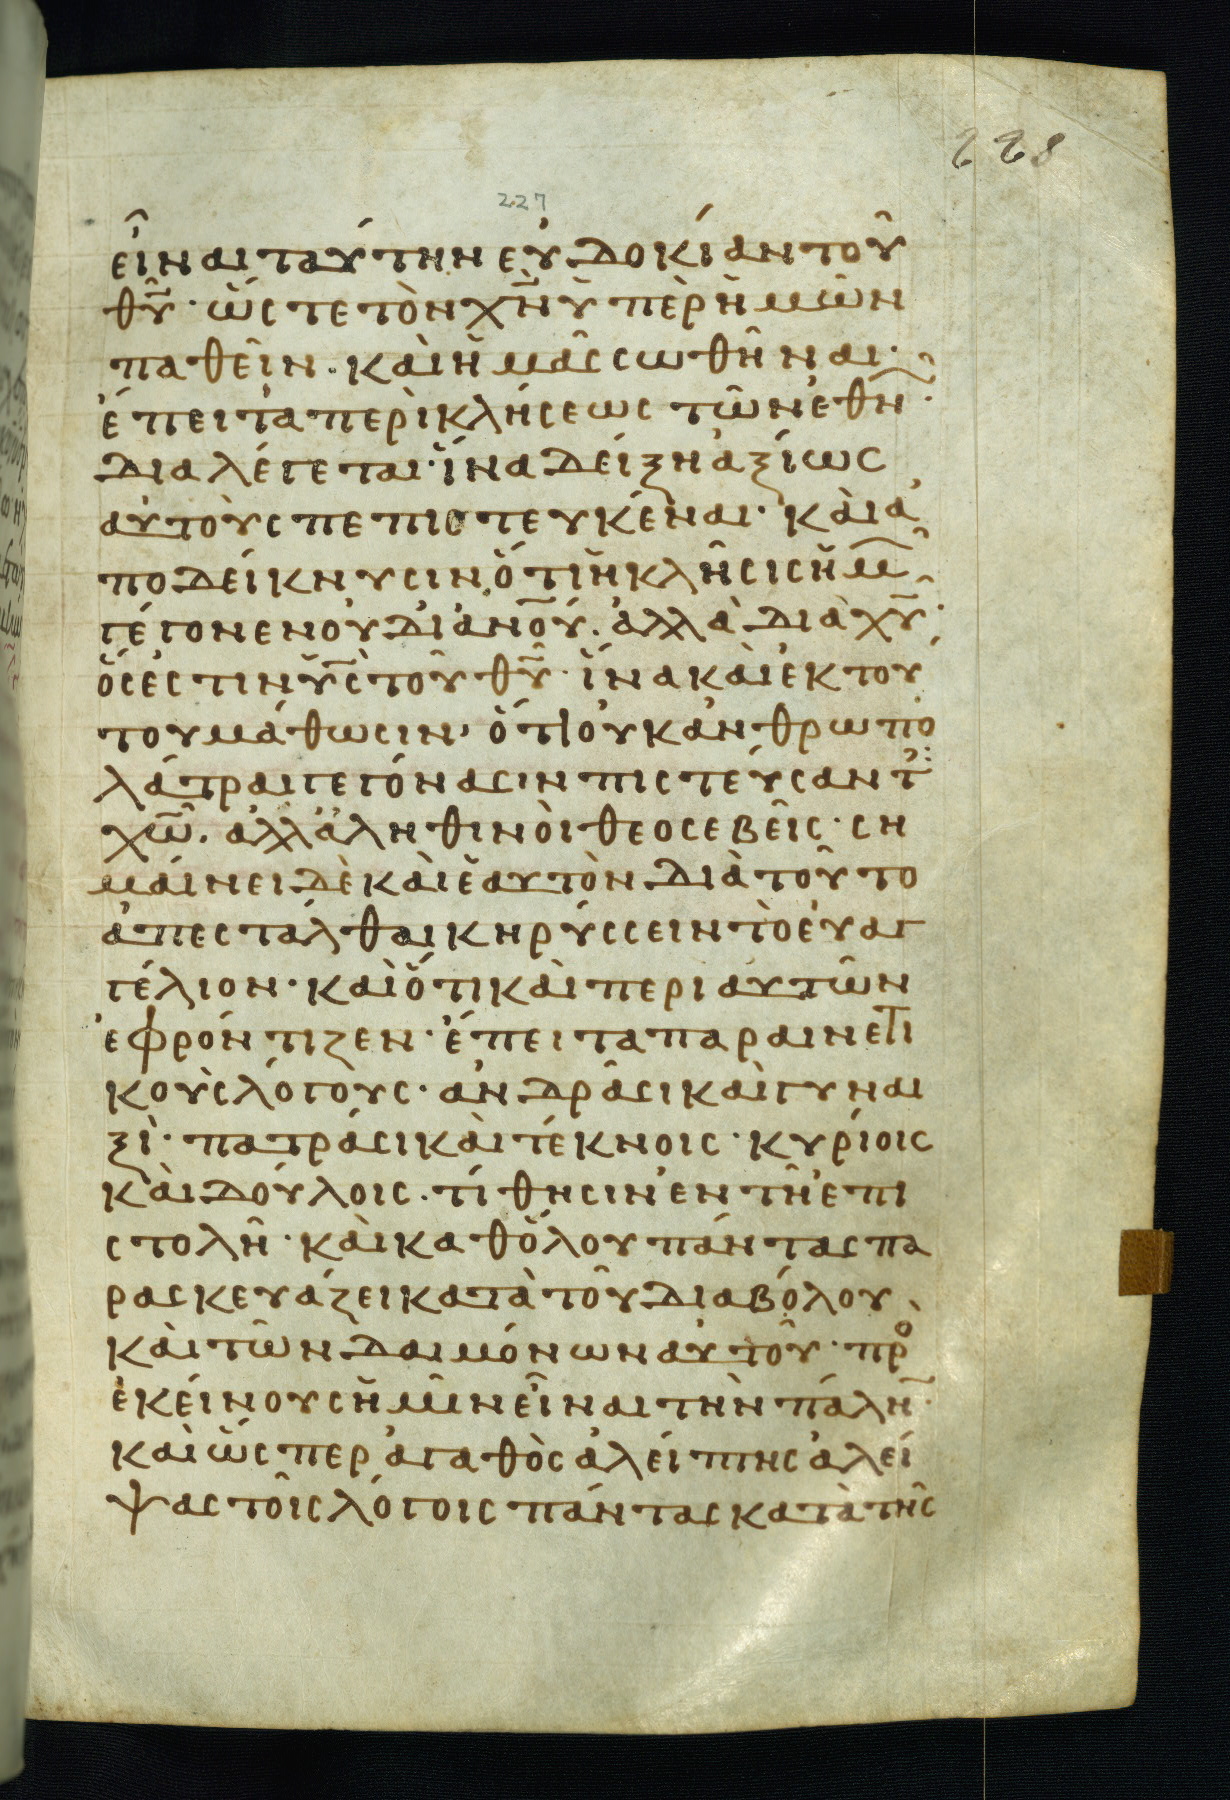 228
227
εἶναι ταύτην εὐδοκίαν τοῦ
θ̅υ̅· ὥστε τὸν χ̅ν̅ ὑπὲρ ἡμῶν
παθεῖν. καὶ ἡμᾶς σωθῆναι·
ἔπειτα περὶ κλήσεως τῶν ἐθν̅·
διαλέγεται· ἵνα δείξη ἀξίως
αὐτοὺς πεπιστευκέναι· καὶ ἀ
ποδείκνυσιν, ὅτι ἡ κλῆσις ἡμ̅
γέγονεν οὐ δι ἀν̅ο̅υ̅. ἀλλὰ διὰ χ̅υ̅·
ὅς ἐστιν υ̅ς̅ τοῦ θ̅υ̅· ἵνα καὶ ἐκ τού
του μάθωσιν, ὅτι οὐκ ἀνθρωπο
λάτραι γεγόνασιν πιστεύσαντ:
χ̅ω̅. ἀλλ ἀληθινοὶ θεοσεβεῖς· ση
μαίνει δὲ καὶ ἑαυτὸν διὰ τοῦτο
ἀπεστάλθαι κηρύσσειν τὸ εὐαγ
γέλιον· καὶ ὅτι καὶ περὶ αὐτῶν
ἐφρόντιζεν· ἔπειτα παραινετι
κοὺς λόγους· ἀνδράσι καὶ γυναι
ξὶ· πατράσι καὶ τέκνοις· κυρίοις
καὶ δούλοις. τίθησιν ἐν τῆ ἐπι
στολῆ· καὶ καθόλου πάντας πα
ρασκευάζει κατὰ τοῦ διαβόλου
καὶ τῶν δαιμόνων αὐτοῦ· πρὸ
ἐκείνους ἡμῖν εἶναι τὴν πάλη̅·
καὶ ὥσπερ ἀγαθὸς ἀλείπτης ἀλεί
ψας τοῖς λόγοις πάντας κατὰ τῆς